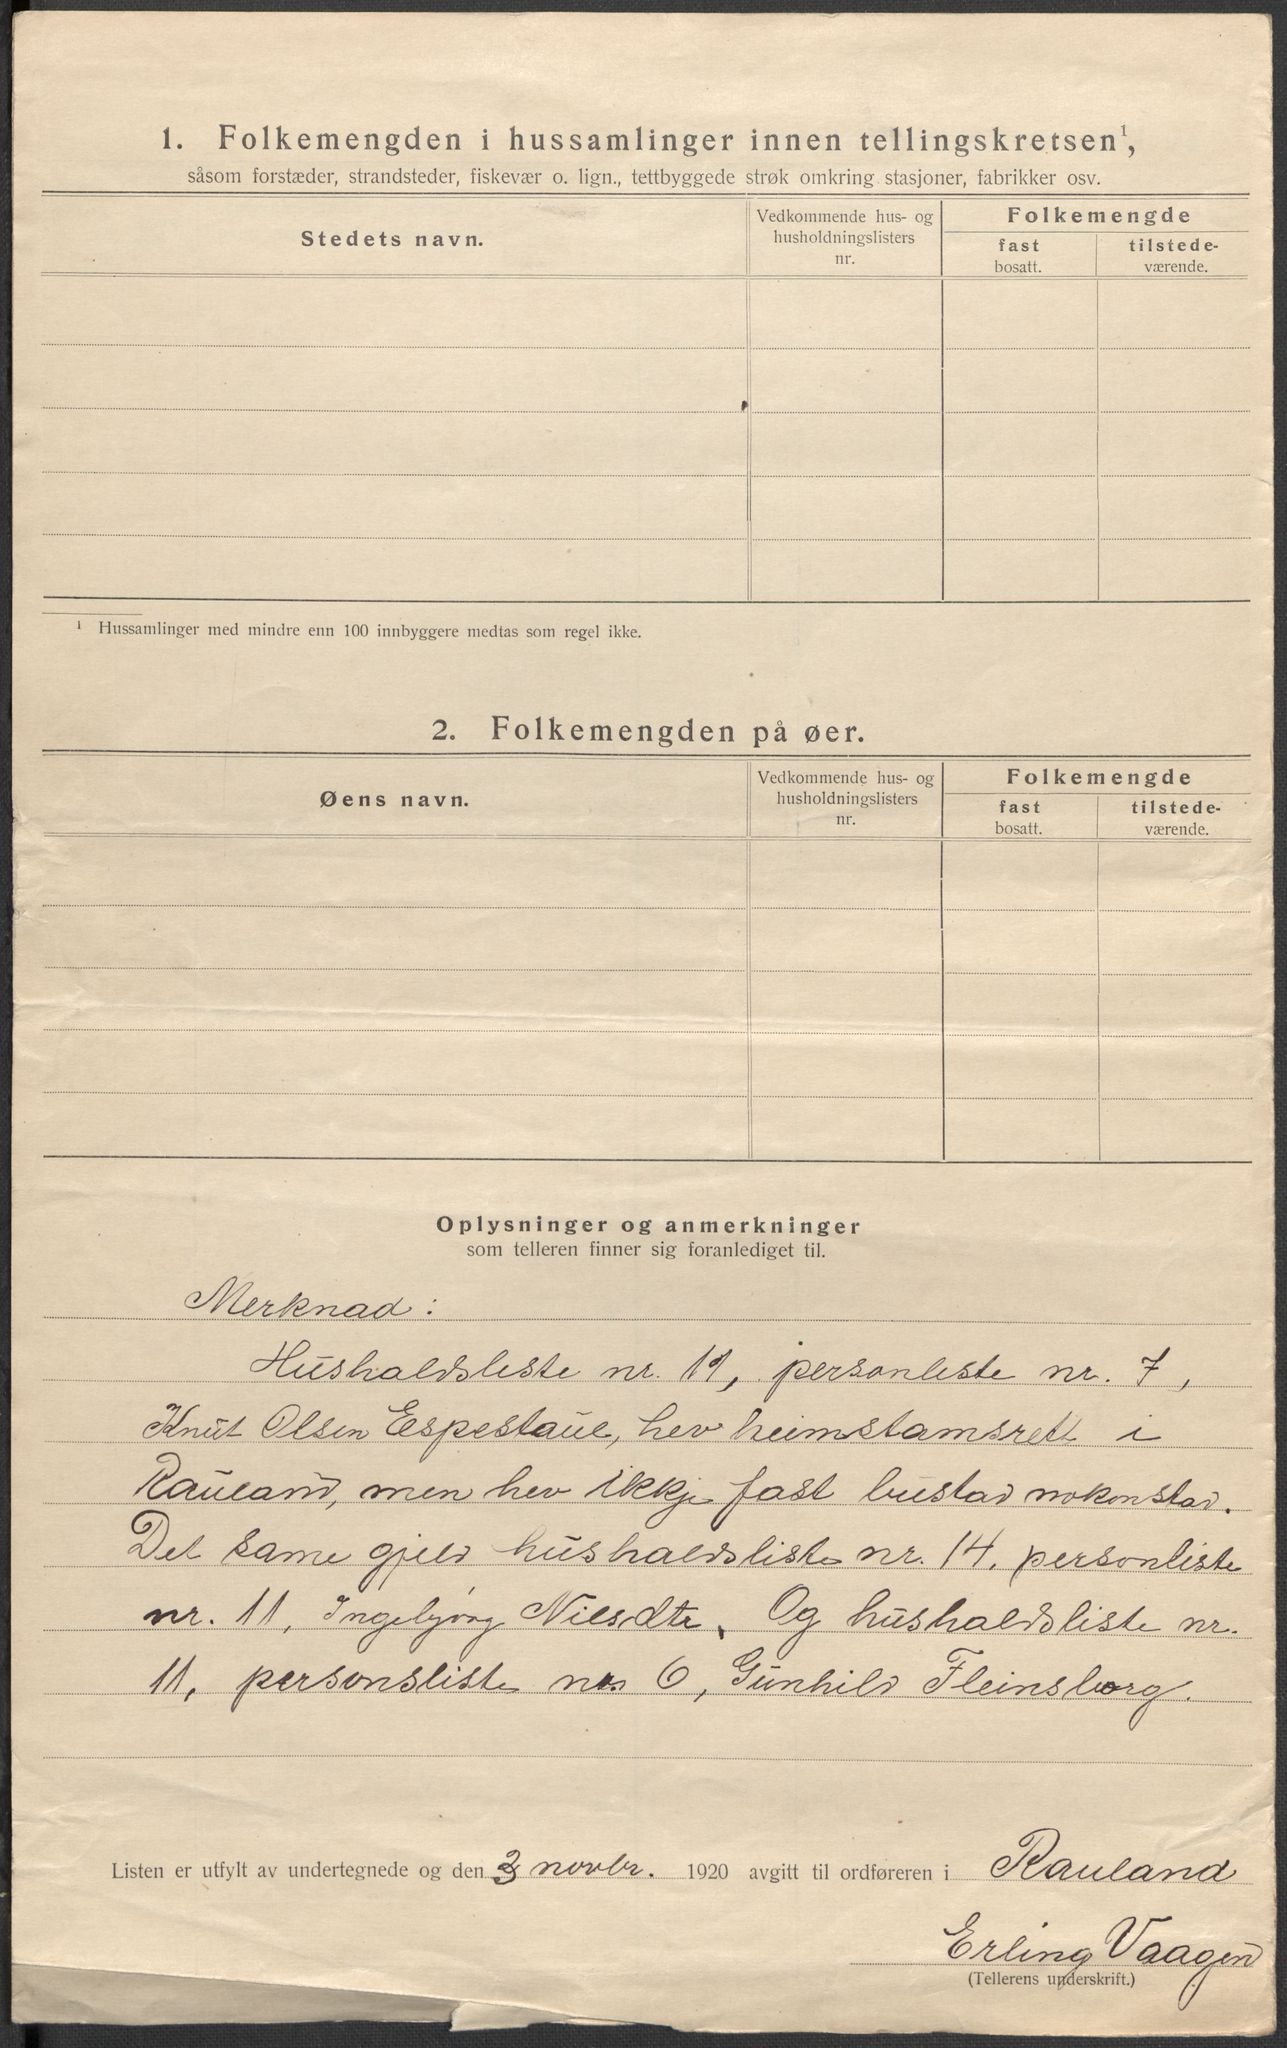 1. Folkemengden i hussamlinger innen tellingskretsen¹,
såsom forstæder, strandsteder, fiskevær o. lign., tettbyggede strøk omkring stasjoner, fabrikker osv.
Stedets navn.
Vedkommende hus- og
husholdningslisters
nr.
Folkemengde
fast
bosatt.
tilstede-
værende.
¹ Hussamlinger med mindre enn 100 innbyggere medtas som regel ikke.
2. Folkemengden på øer.
Øens navn.
Vedkommende hus- og
husholdningslisters
nr.
Folkemengde
fast
bosatt.
tilstede-
værende.
Oplysninger og anmerkninger
som telleren finner sig foranlediget til.
Merknad:
Hushaldsliste nr. 11, personliste nr. 7,
Knut Olsen Espestaul, hev heimstamsrett i
Rauland, men hev ikkje fast bustad nokonstad.
Det same gjeld hushaldsliste nr. 14, personliste
nr. 11, Ingebjörg Nilsdtr. Og hushaldsliste nr.
11, personsliste nr 6, Gunhild Fleinsborg.
Listen er utfylt av undertegnede og den novbr. 1920 avgitt til ordføreren i Rauland
Erling Vaagen
(Tellerens underskrift.)